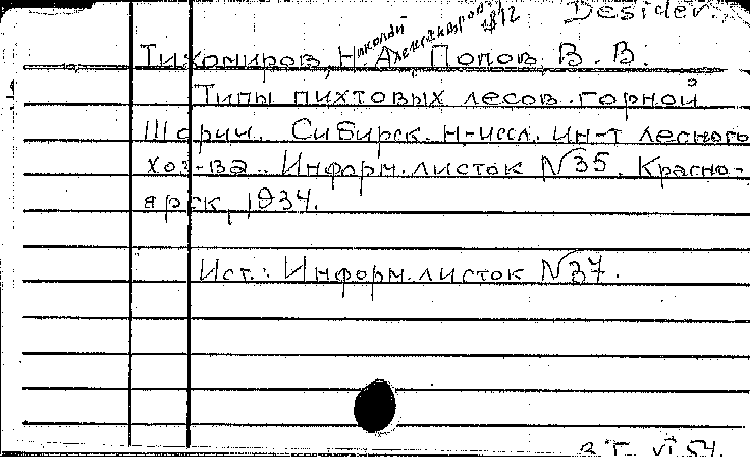 Desider.
Николай Александров. 1812
Тихомиров, Н. А., Попов, В. В.
Типы пихтовых лесов горной
Шории. Сибирск. н-иссл. ин-т лесного
хоз-ва. Информ. листок №35. Красно-
ярск, 1934.
Ист.: Информ. листок №37.
VI 54.